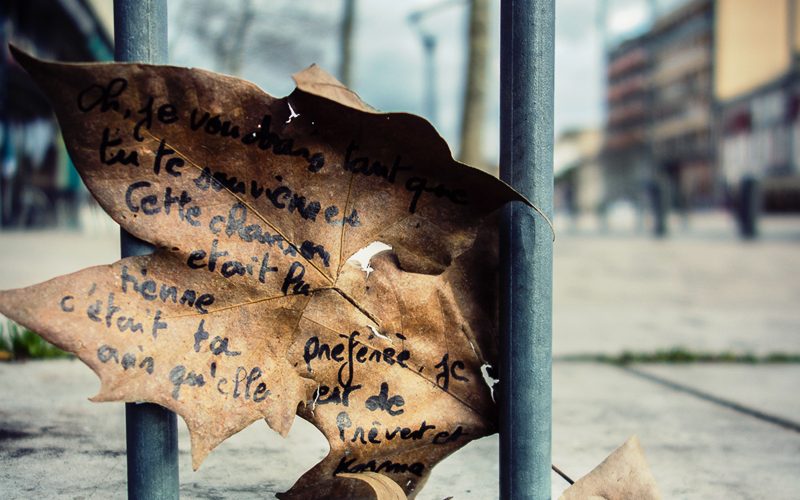 Oh, je voudrais tant que
tu te souviennes
Cette chanson
était la
tienne
c'était ta
préférée, je
crois qu'elle
est de
Prévert et
Kosma